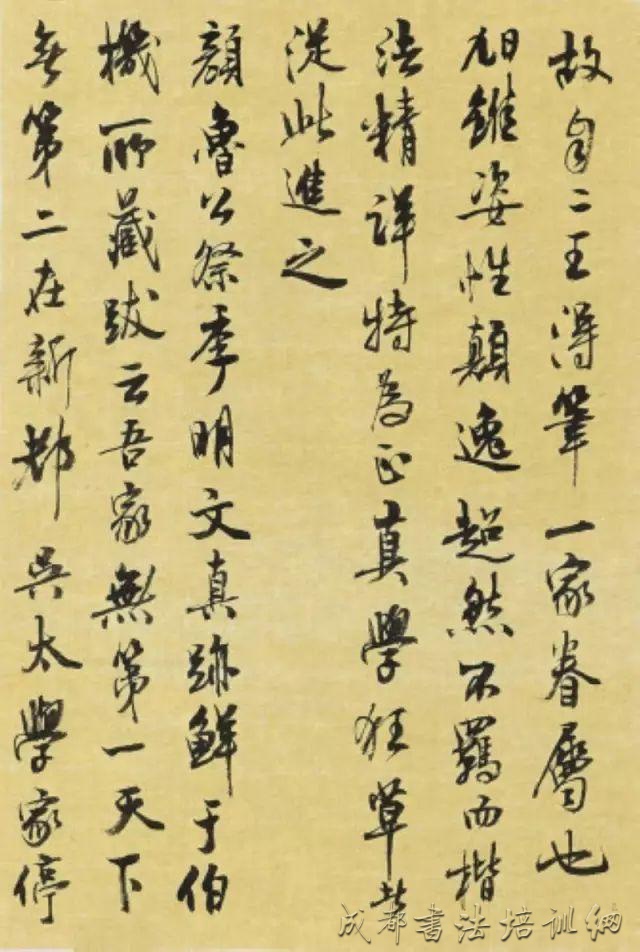 故自二王得筆一家眷屬也
旭雖姿性顛逸超然不羈而楷
法精詳特為正真學狂草者
從此進之
顏魯公祭季明文真跡鮮于伯
機所藏跋云吾家無第一天下
無第二在新都吳太學家停
成都书法培训网